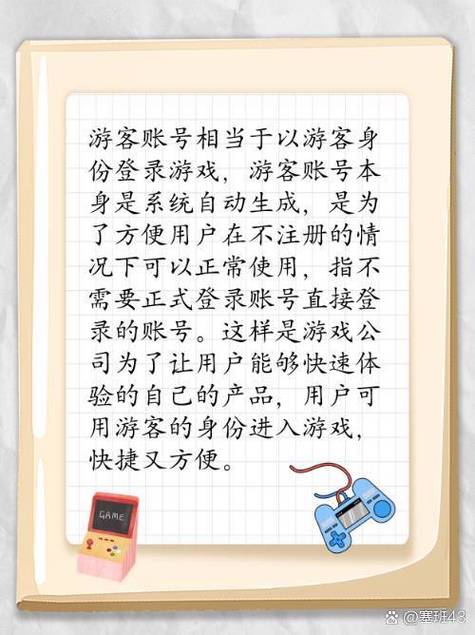 游客账号相当于以游客身
份登录游戏，游客账号本
身是系统自动生成，是为
了方便用户在不注册的情
况下可以正常使用，指不
需要正式登录账号直接登
录的账号。这样是游戏公
司为了让用户能够快速体
验的自己的产品，用户可
用游客的身份进入游戏，
快捷又方便。
GAME
@塞班43